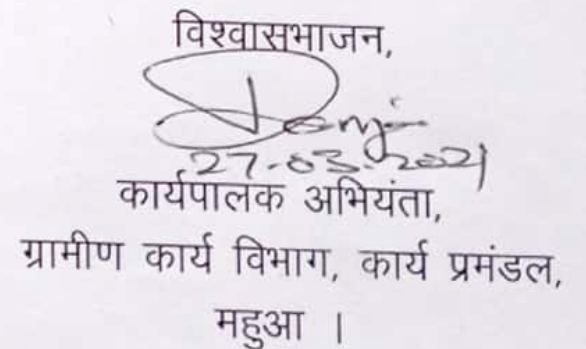 विश्वासभाजन,
27-03-2021
कार्यपालक अभियंता,
ग्रामीण कार्य विभाग, कार्य प्रमंडल,
महुआ ।